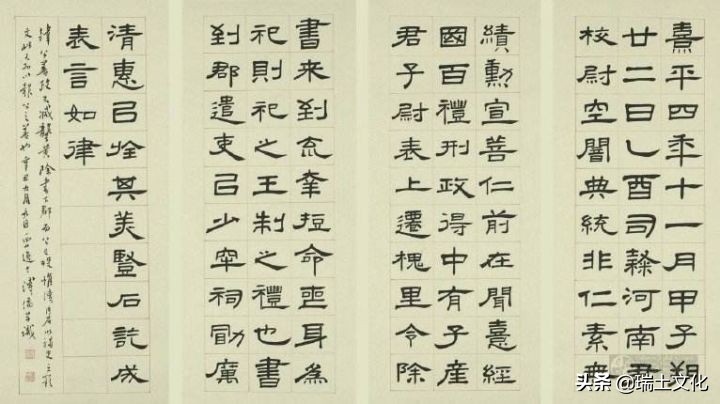 熹平四年十一月甲子朔
廿二日乙酉司隸河南尹
校尉空闇典統非仁素無
績勳宣善仁前在聞憙經
國百禮刑政得中有子產
君子尉表上遷槐里令除
書未到不幸短命喪身為
祀則祀之王制之禮也書
到郡遣吏以少牢祠勖厲
清惠以旌其美竪石訖成
表言如律
头条 @瑞士文化